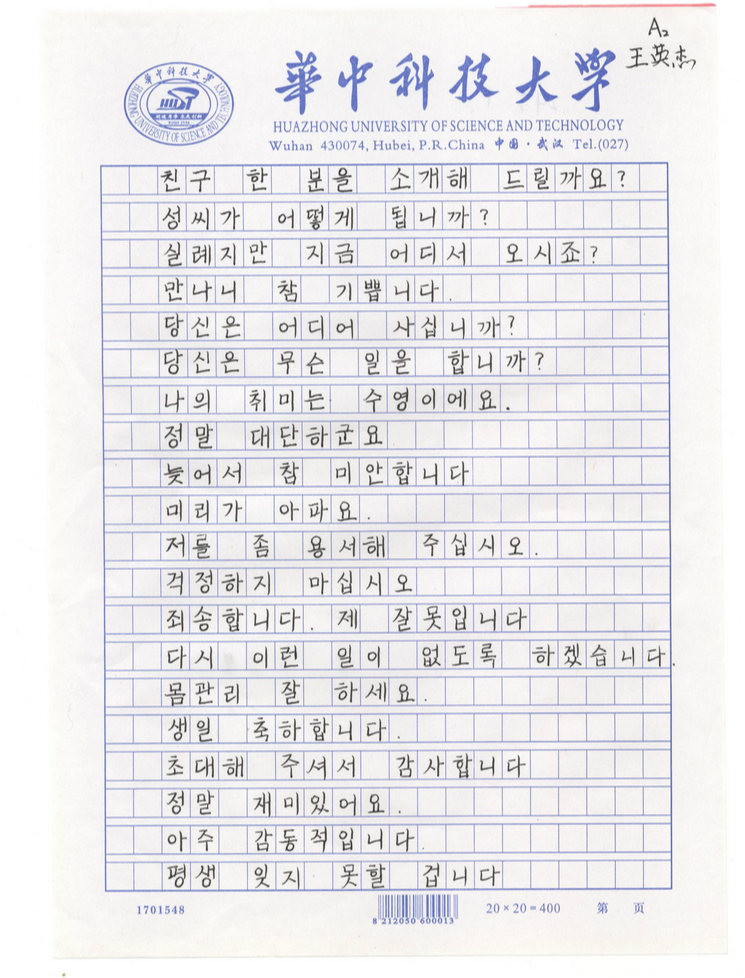 A2
王英杰
華中科技大学
HUAZHONG UNIVERSITY OF SCIENCE AND TECHNOLOGY
Wuhan 430074, Hubei, P.R.China 中国·武汉 Tel.(027)
친구 한 분을 소개해 드릴까요?
성씨가 어떻게 됩니까?
실례지만 지금 어디서 오시죠?
만나니 참 기쁩니다.
당신은 어디어 사십니까?
당신은 무슨 일을 합니까?
나의 취미는 수영이에요.
정말 대단하군요
늦어서 참 미안합니다
미리가 아파요.
저를 좀 용서해 주십시오.
걱정하지 마십시오
죄송합니다. 제 잘못입니다
다시 이런 일이 없도록 하겠습니다.
몸관리 잘 하세요.
생일 축하합니다.
초대해 주셔서 감사합니다
정말 재미있어요.
아주 감동적입니다.
평생 잊지 못할 겁니다
1701548
8 212050 600013
20×20=400 第 页